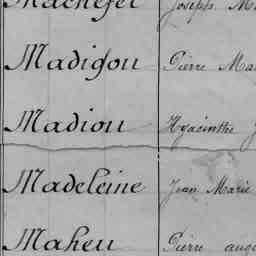 Machefer Joseph M
Madigou Pierre Ma
Madiou Hyacinthe J
Madeleine Jean Marie
Maheu Pierre aug